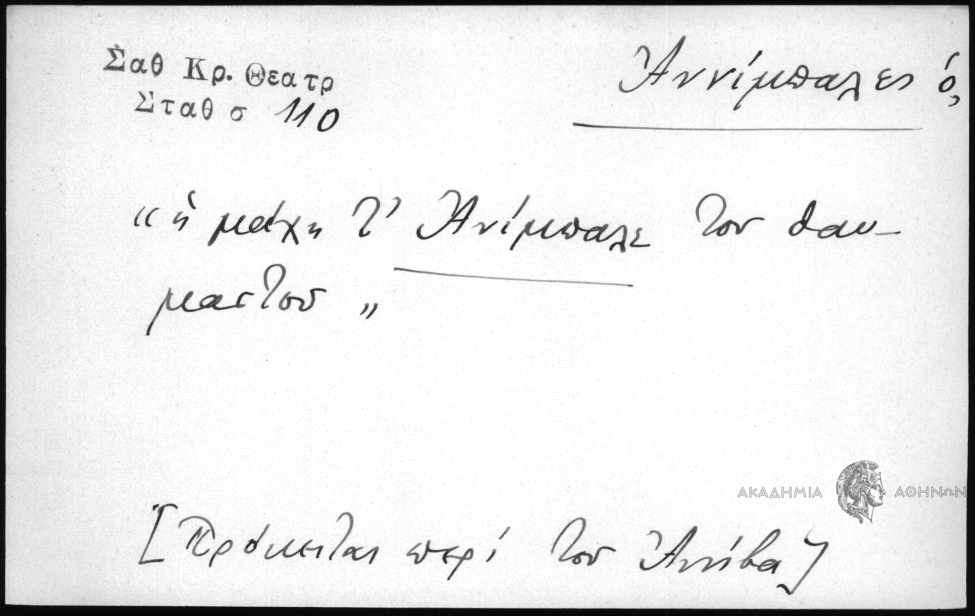 Σαθ Κρ. Θεατρ
Σταθ σ 110
Ἀννίμπαλες ὁ,
“ ἡ μάχη τ' Ἀνίμπαλε του θαυ-
μαστου „
ΑΚΑΔΗΜΙΑ ΑΘΗΝΩΝ
[Πρόκειται περί του Ἀννίβα]